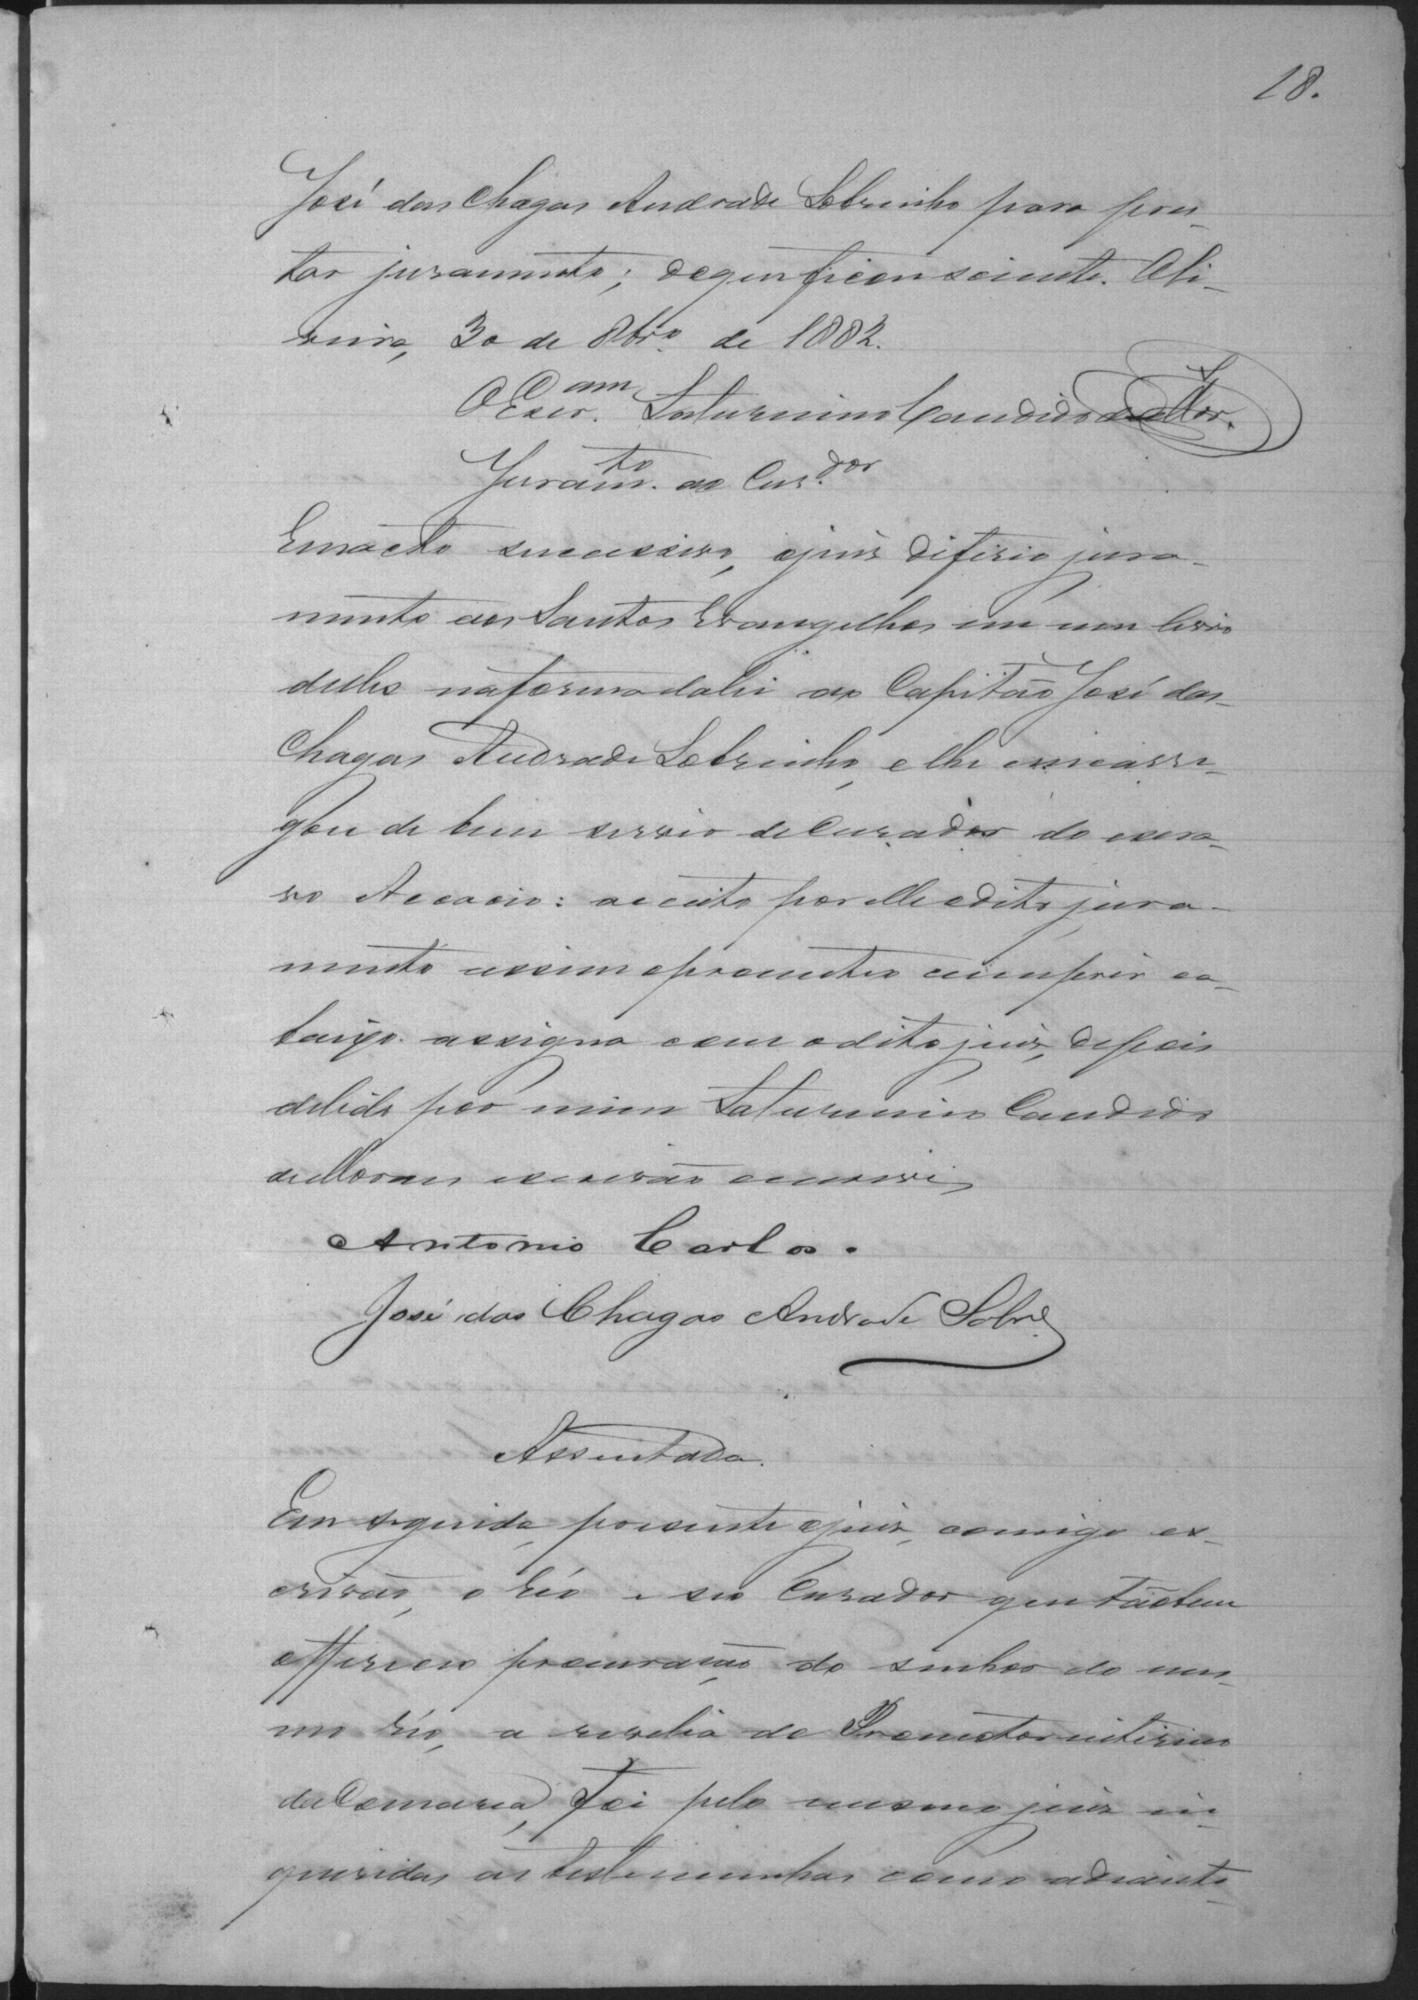 18.
José das Chagas Andrade Sobrinho para pres-
tar juramento; de que ficou sciente. Oli-
veira, 30 de 8br.o de 1882.
O Escr.am Saturnino Candido de Mor.
Juram.to ao Cur.dor
Em acto successivo, o juiz diferio jura-
mento aos Santos Evangelhos em um livro
delles na forma da lei ao Capitão José das
Chagas Andrade Sobrinho, e lhe encarre-
gou de bem servir de Curador do escra-
vo Accacio: acceito por elle o dito jura-
mento assim o prometteo cumprir e a-
baixo assigna com o dito juiz, depois
de lido por mim Saturnino Candido
de Moraes escrivão o escrevi
Antonio Carlos.
José das Chagas Andrade Sobr.o
Assentada.
Em seguida, presente o juiz, comigo es-
crivão, o réo e seo Curador que tãobem
offereceo procuração do senhor do mes-
mo réo, a revelia do Promotor interino
da Comarca, foi pelo mesmo juiz in-
queridas as testemunhas como adiante